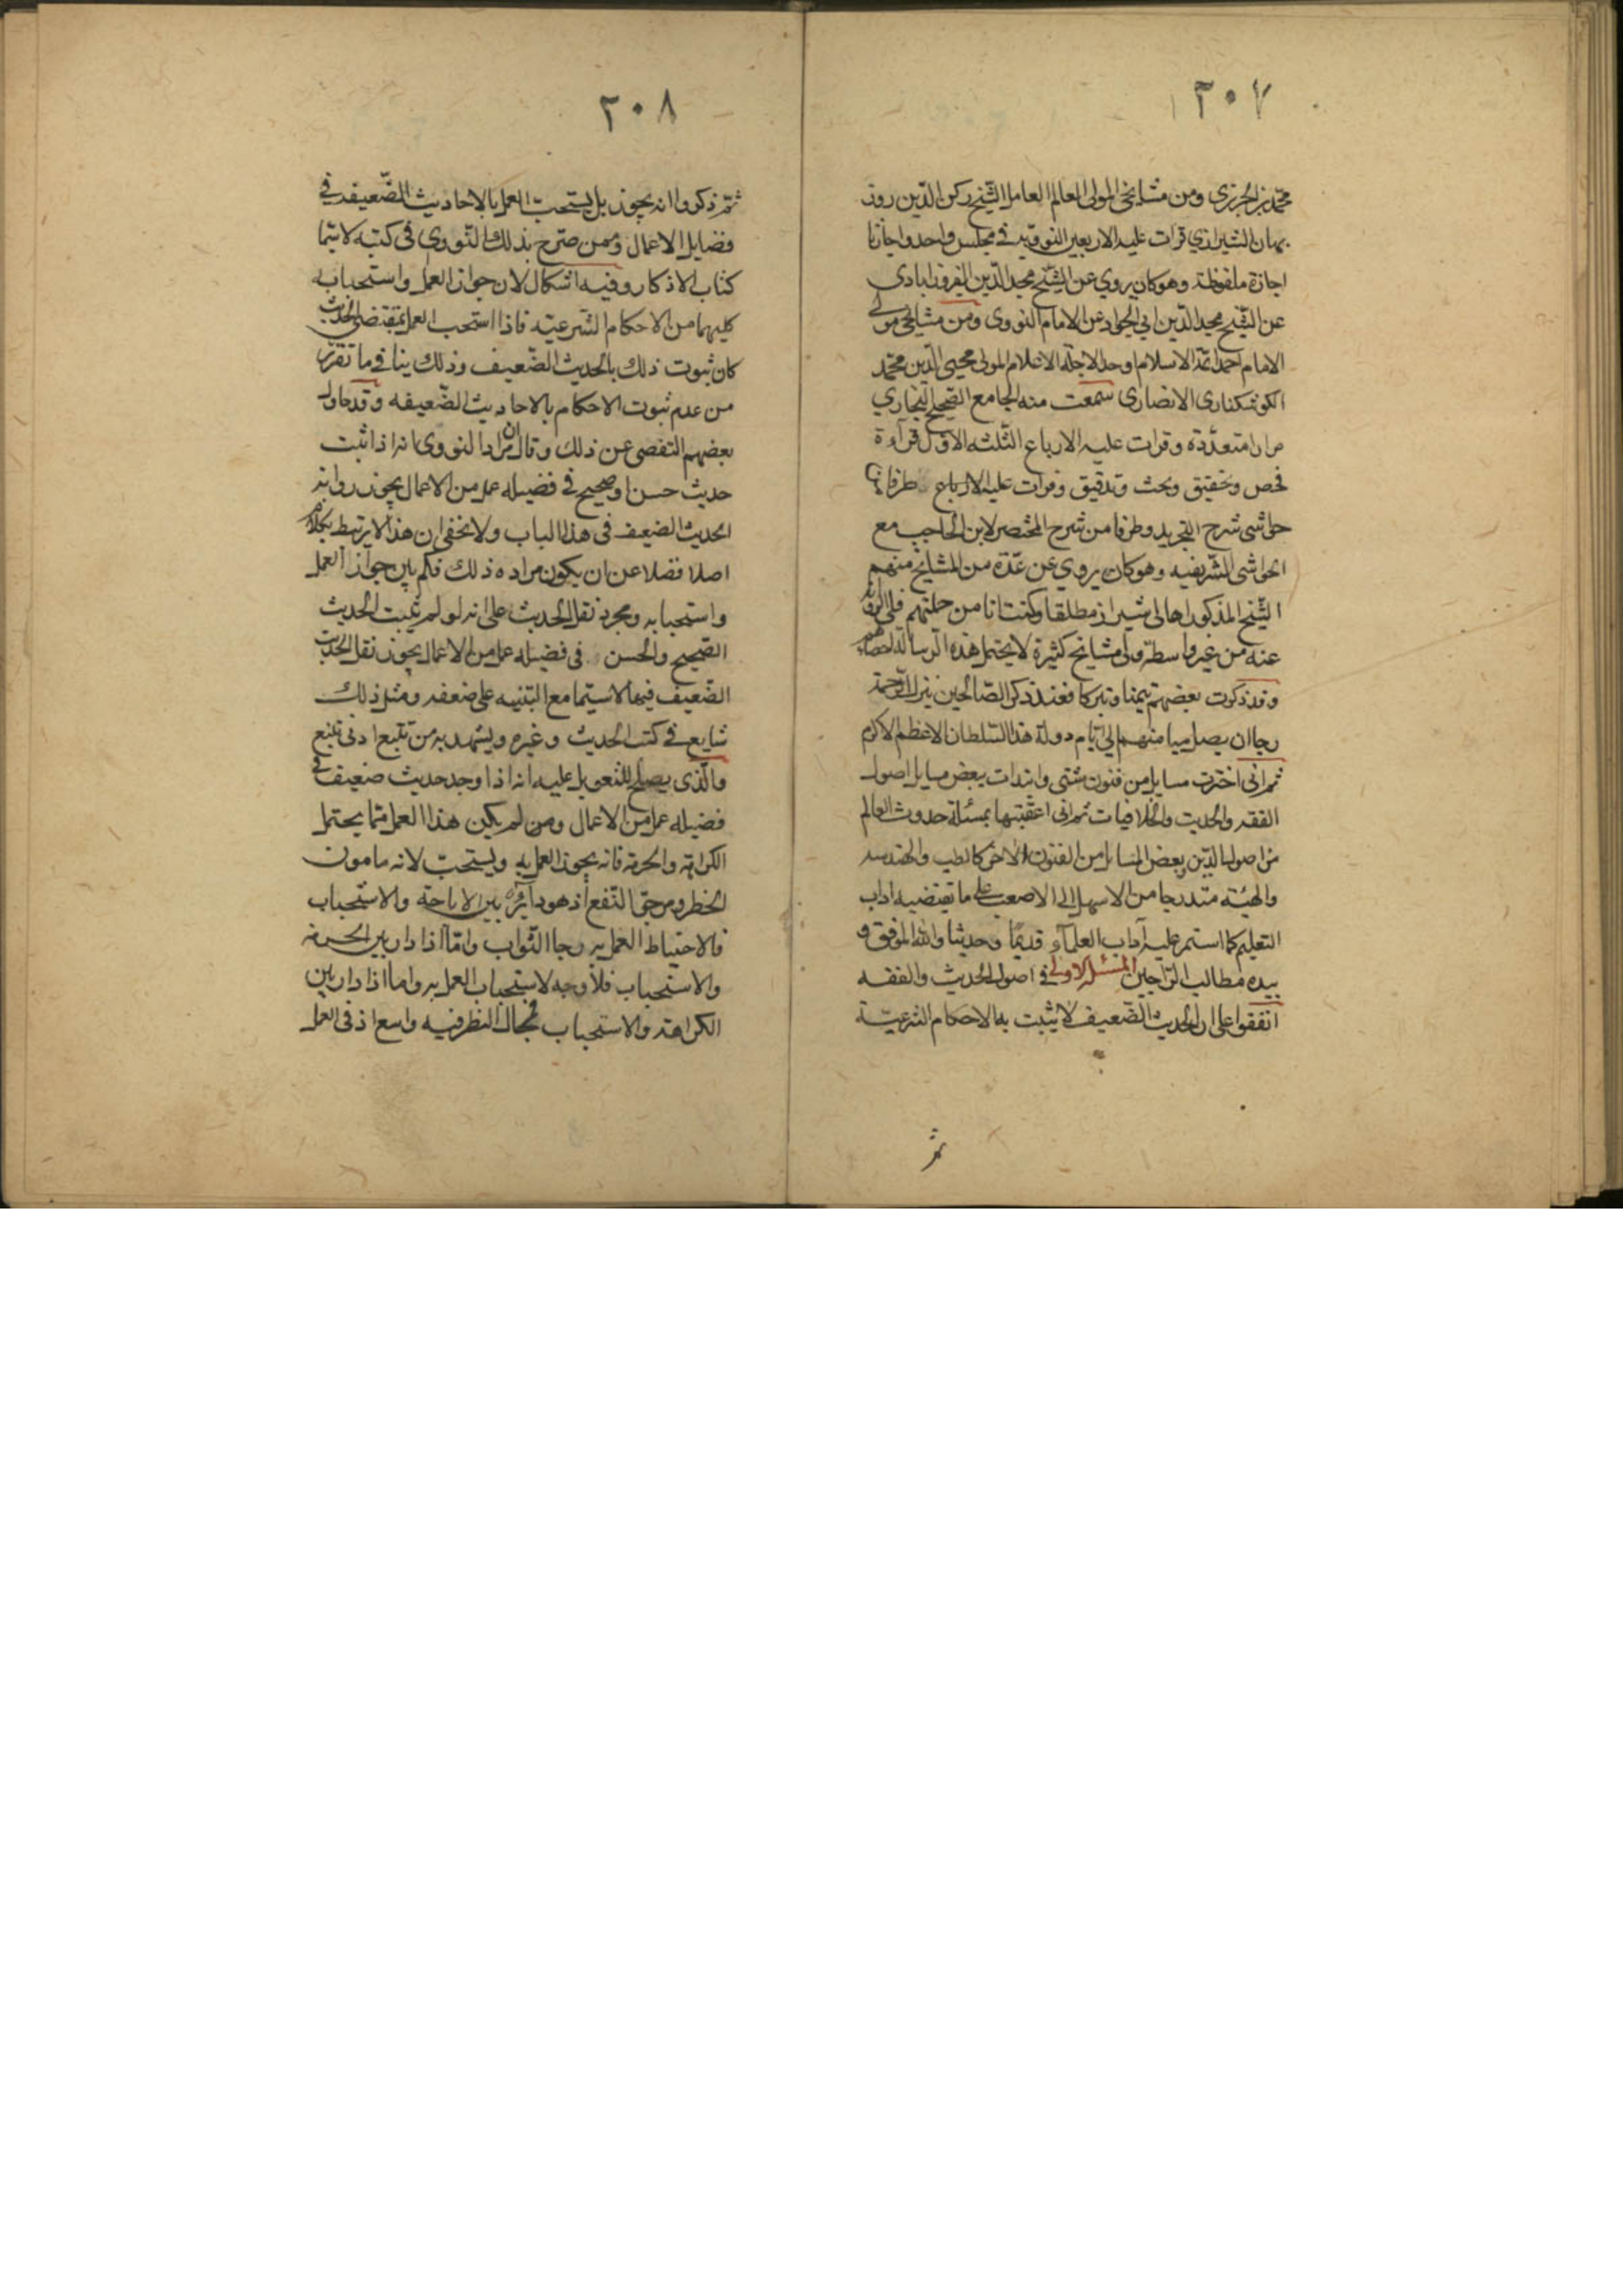 ٢٠٧
محمد بن الجزري ومن مشايخي المولى العالم العامل الشيخ ركن الدين روز
بهان الشيرازي قرات عليه الاربعين النووية في مجلس واحد واجازنا
اجازة ملفوظة وهو كان يروي عن الشيخ مجد الدين الفيروزابادي
عن الشيخ مجد الدين ابي الجواد عن الامام النووى ومن مشايخي مولى
الامام احد ائمة الاسلام اوحد الاجلة الاعلام المولى محيى الدين محمد
الكوشكنارى الانصارى سمعت منه الجامع الصحيح للبخاري
مرارا متعددة وقرات عليه الارباع الثلثه الاول قرآءة
فحص وتحقيق وبحث وتدقيق وقرات عليه الارباع طرفا من
حواشى شرح التجريد وطرفا من شرح المختصر لابن الحاجب مع
الحواشى الشريفيه وهو كان يروي عن عدة من المشايخ منهم
الشيخ المذكور اهالى شيراز مطلقا وكنت انا من جملتهم فلى الرواية
عنه من غير واسطة ولى مشايخ كثيرة لا يحتمل هذه الرسالة احصاءهم
وقد ذكرت بعضهم تيمنا وتبركا فعند ذكر الصالحين ينزل الرحمة
رجا ان يصل ميامنهم الى ايام دولة هذا السلطان الاعظم الاكرم
ثم انى اخترت مسايل من فنون شتى وابتدات ببعض مسايل اصول
الفقه والحديث والخلافيات ثم انى اعقبتها بمسئلة حدوث العالم
من اصول الدين وبعض المسايل من الفنون الاخر كالطب والهندسه
والهيئة متدرجا من الاسهل الى الاصعب على ما تقتضيه اداب
التعليم كما استمر عليه آداب العلمآء قديما وحديثا والله الموفق و
بيده مطالب الراجين المسئلة الاولى في اصول الحديث والفقه
اتفقوا على ان الحديث الضعيف لا يثبت به الاحكام الشرعية
ثم
٢٠٨
ثم ذكروا انه يجوز بل يستحب العمل بالاحاديث الضعيفه في
فضايل الاعمال وممن صرح بذلك النووى في كتبه لا سيما
كتاب الاذكار وفيه اشكال لان جواز العمل واستحبابه
كليهما من الاحكام الشرعيه فاذا استحب العمل بمقتضى الحديث
كان ثبوت ذلك بالحديث الضعيف وذلك ينافي ما تقرر
من عدم ثبوت الاحكام بالاحاديث الضعيفه وقد حاول
بعضهم التفصى عن ذلك وقال ان مراد النووى انه اذا ثبت
حديث حسن او صحيح في فضيله عمل من الاعمال يجوز روايه
الحديث الضعيف فى هذا الباب ولا يخفى ان هذا لا يرتبط بكلامه
اصلا فضلا عن ان يكون مراده ذلك فكم بين جواز العمل
واستحبابه ومجرد نقل الحديث على انه لو لم يثبت الحديث
الصحيح والحسن فى فضيله عمل من الاعمال يجوز نقل الحديث
الضعيف فيها لا سيما مع التنبيه على ضعفه ومثل ذلك
شايع فى كتب الحديث وغيره ويشهد به من تتبع ادنى تتبع
والذى يصلح للتعويل عليه انه اذا وجد حديث ضعيف في
فضيله عمل من الاعمال ومن لم يكن هذا العمل مما يحتمل
الكراهة والحرمة فانه يجوز العمل به ويستحب لانه مامون
الخطر ومرجو النفع اذ هو دآير بين الاباحة والاستحباب
فالاحتياط العمل به رجا الثواب واما اذا دار بين الحرمه
والاستحباب فلا وجه لاستحباب العمل به واما اذا دار بين
الكراهة والاستحباب فمجال النظر فيه واسع اذ فى العمل